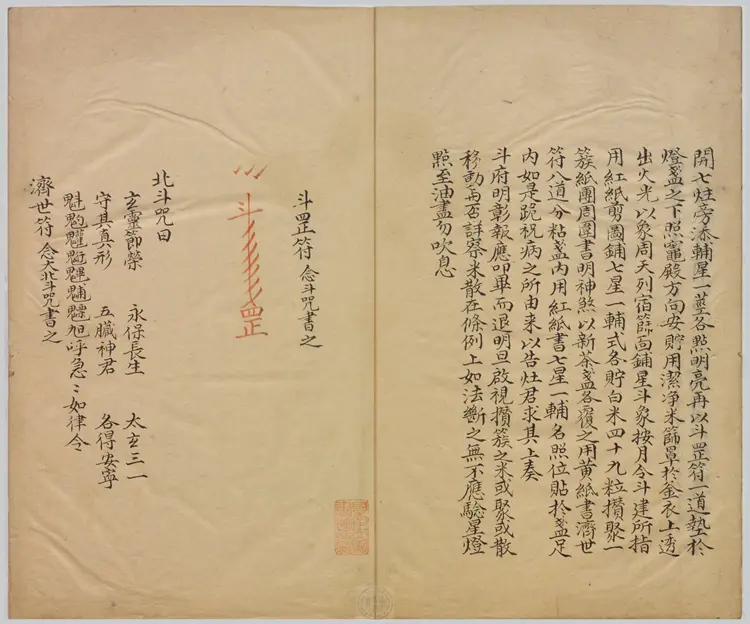 開七炷旁添輔星一莖各點明亮再以斗罡符一道墊於
燈盞之下照竈殿方向安貯用潔净米篩罩於釜衣上透
出火光以象周天列宿篩面鋪星斗象按月令斗建所指
用紅紙剪圖鋪七星一輔式各貯白米四十九粒攢聚一
簇紙團周圍書明神煞以新茶盞各覆之用黄紙書濟世
符八道分粘盞内用紅紙書七星一輔名照位貼於盞足
内如是跪祝病之所由来以告灶君求其上奏
斗府明彰報應叩畢而退明旦啟視攢簇之米或聚或散
移動與否詳察米散在條例上如法斷之無不應驗星燈
點至油盡勿吹息
斗罡符 念斗咒書之
斗 罡
北斗咒曰
玄靈節榮 永保長生 太玄三一
守其真形 五臟神君 各得安寧
魁䰢䰟旭呼急〻如律令
濟世符 念大北斗咒書之